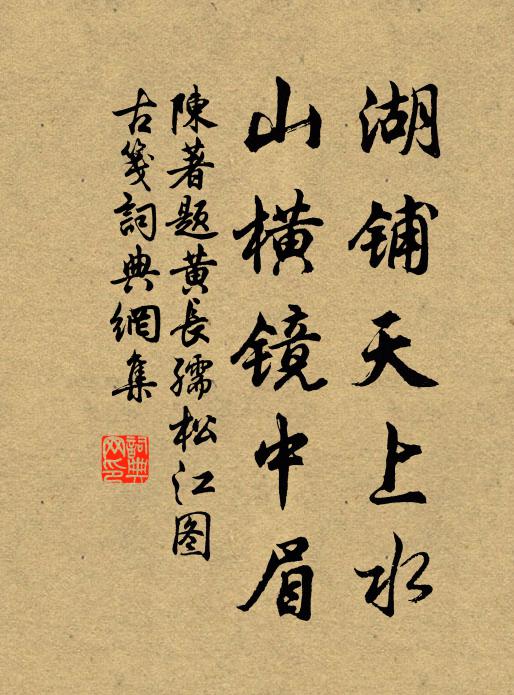 湖铺天上水
山橫镜中眉
陳著题黄長孺松江图
古箋詞典網集
詞典
网印